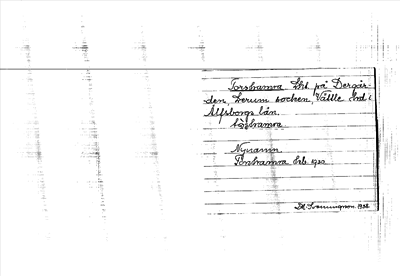 Torskamra lht på Dergår-
den, Lerum socken, Vättle hd i
Älfsborgs län.
Torskamra

Nynamn
Torskamra lht. 1920

D. H. 1938